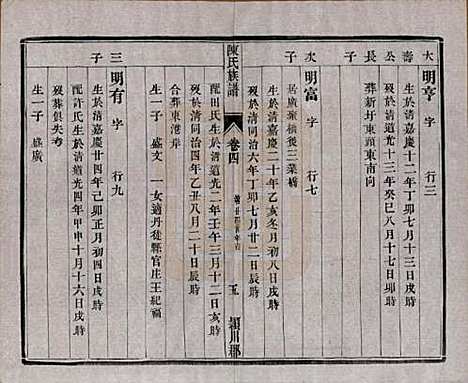 大壽公長子
明亨 字 行三
生於清嘉慶十二年丁卯七月十三日戌時
歿於清道光十三年癸巳八月十七日卯時
葬新圩東頭東南向
次子
明富 字 行七
居廣東橋後三業橋
生於清嘉慶二十年乙亥冬月初八日戌時
歿於清同治六年丁卯七月廿二日辰時
陳氏族譜
卷四
五
潁川郡
配田氏生於清道光二年壬午三月十二日亥時
歿於清同治四年乙丑八月二十日辰時
合葬東港岸
生一子 盛文 一女適丹徒縣官庄王紀福
三子
明有 字 行九
生於清嘉慶廿四年己卯正月初四日戌時
配許氏生於清道光四年甲申十月十六日戌時
歿葬俱失考
生一子 盛廣